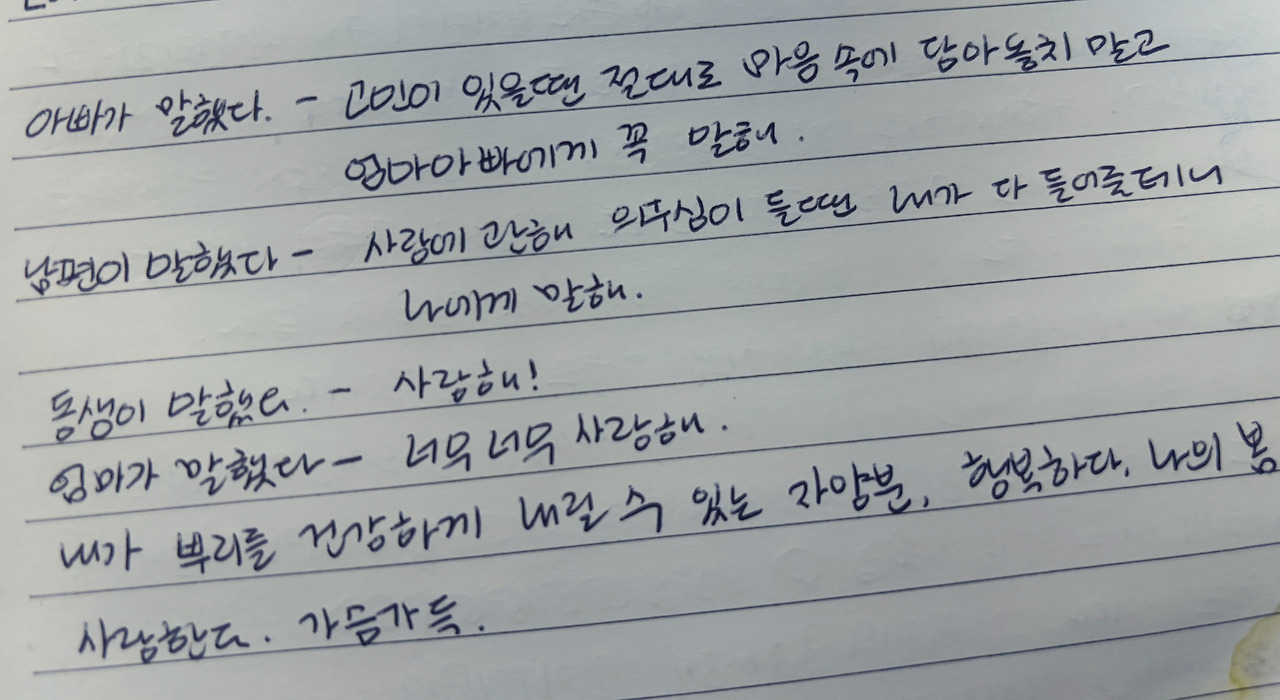 아빠가 말했다. - 고민이 있을땐 절대로 마음 속에 담아놓치 말고
엄마아빠에게 꼭 말해.
남편이 말했다 - 사랑에 관해 의구심이 들땐 내가 다 들어줄테니
나에게 말해.
동생이 말했다. - 사랑해!
엄마가 말했다 - 너무너무 사랑해.
내가 뿌리를 건강하게 내릴 수 있는 자양분, 행복하다, 나의 봄
사랑한다. 가슴가득.